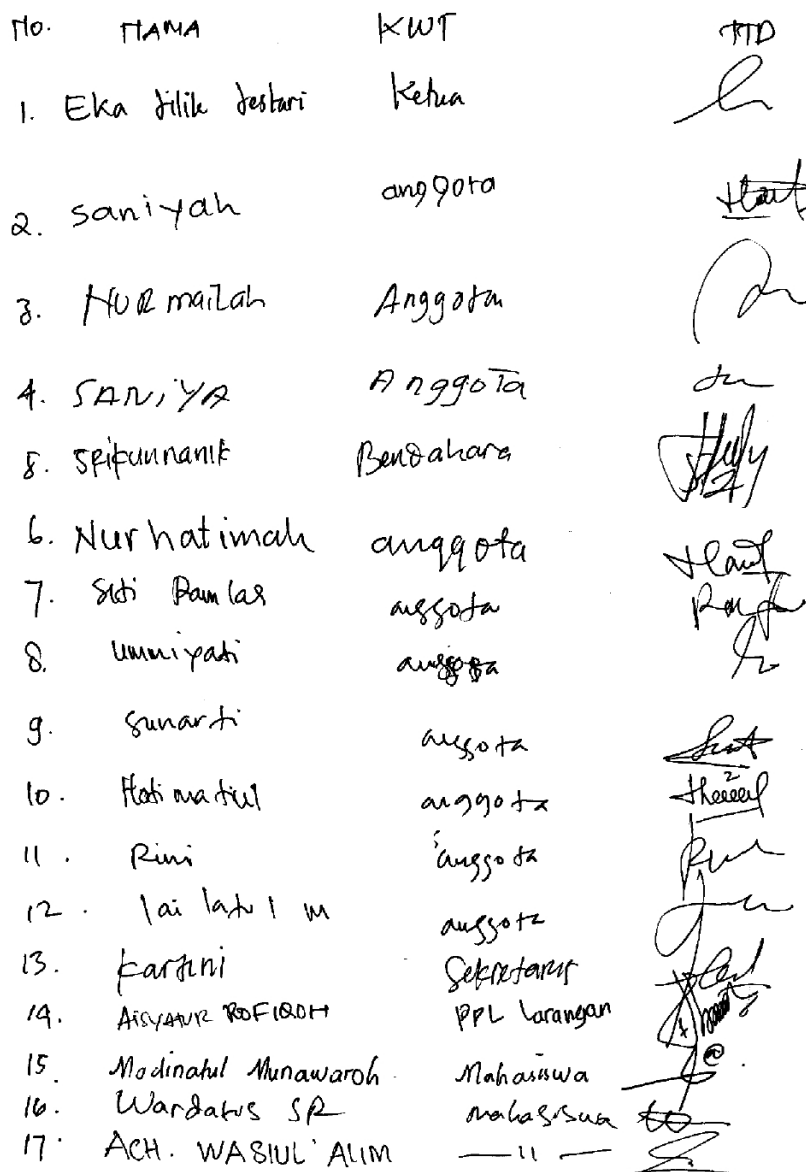 No. NAMA KWT TTD
1. Eka Lilik Lestari Ketua
2. Saniyah anggota
3. NUR mailah Anggota
4. SANiYA AnggoTa
5. Bendahara
6. Nur hatimah anggota
7. Siti Ramlas anggota
8. Ummiyati anggota
9. Sunarti anggota
10. Hotimatiul anggota
11. Rini anggota
12. lailatul m anggota
13. Kartini Sekretaris
14. AISYATUR ROFIQOH PPL Larangan
15. Madinatul Munawaroh Mahasiswa
16. Wardatus SR mahasiswa
17. ACH. WASIUL ALIM — 11 —